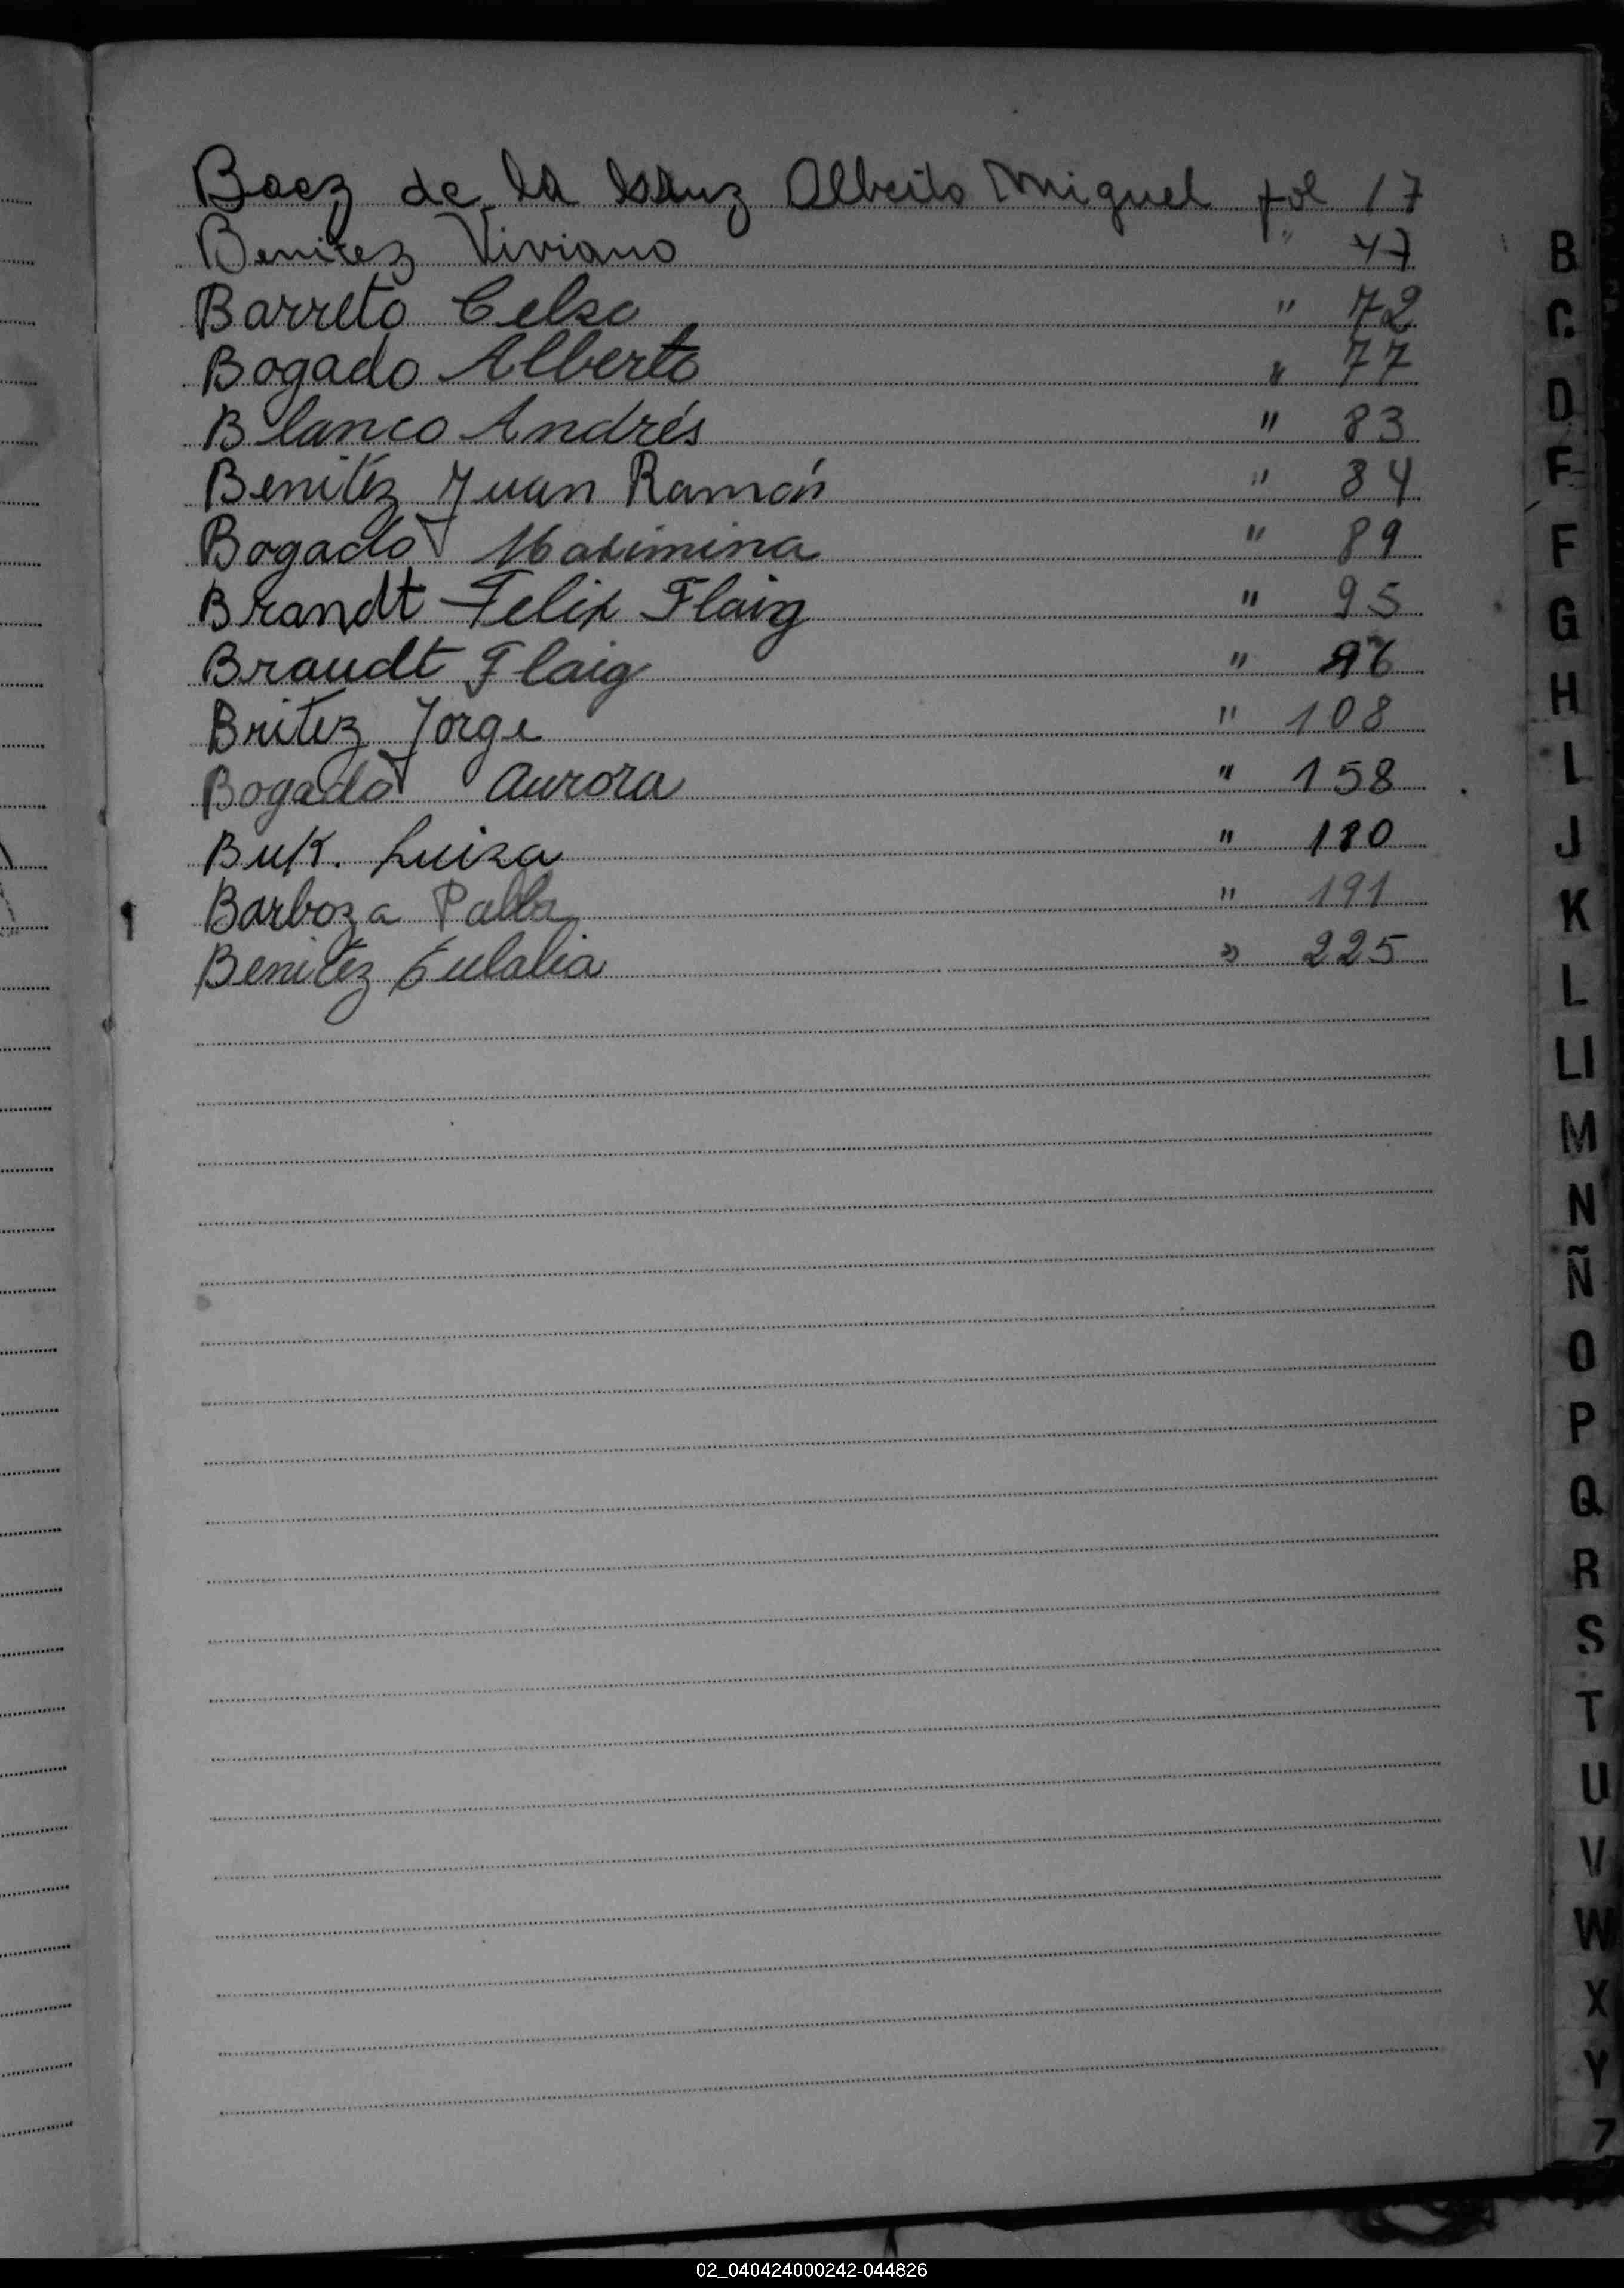 Baez de la Cruz Alberto Miguel fol 17
Benitez Viviano " 47
Barreto Celso " 72
Bogado Alberto " 77
Blanco Andrés " 83
Benitez Juan Ramón " 84
Bogado Maximina " 89
Brandt Felix Flaig " 95
Braudt Flaig " 96
Britez Jorge " 108
Bogado Aurora " 158
Buk. Luisa " 180
Barboza Pabla " 191
Benitez Eulalia " 225
B
C
D
E
F
G
H
I
J
K
L
Ll
M
N
Ñ
O
P
Q
R
S
T
U
V
W
X
Y
Z
02_040424000242-044826